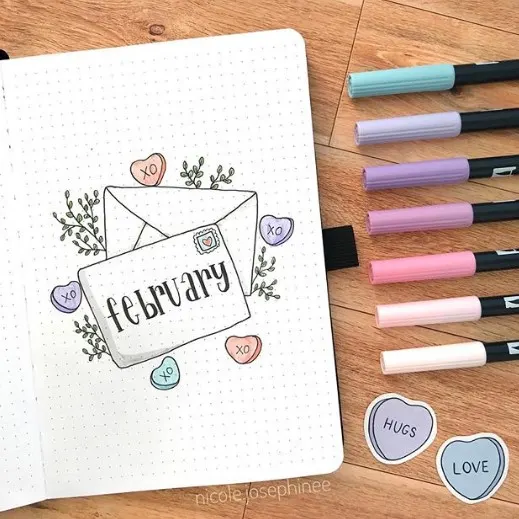 XO
XO
february
XO
XO
XO
HUGS
LOVE
nicole.josephinee